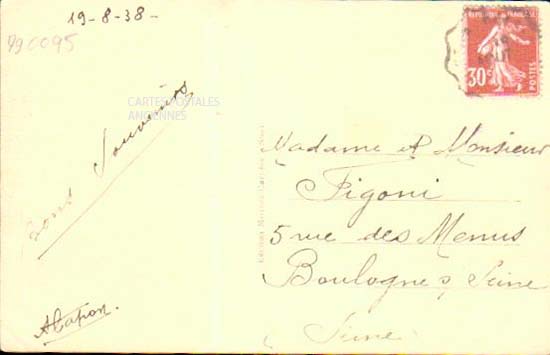 19-8-38-
790095
REPUBLIQUE FRANÇAISE
30c
POSTES
CARTES POSTALES
ANCIENNES
Bons Souvenirs
Madame et Monsieur
Figoni
5 rue des Menus
Boulogne s/ Seine
Seine
ACapon.